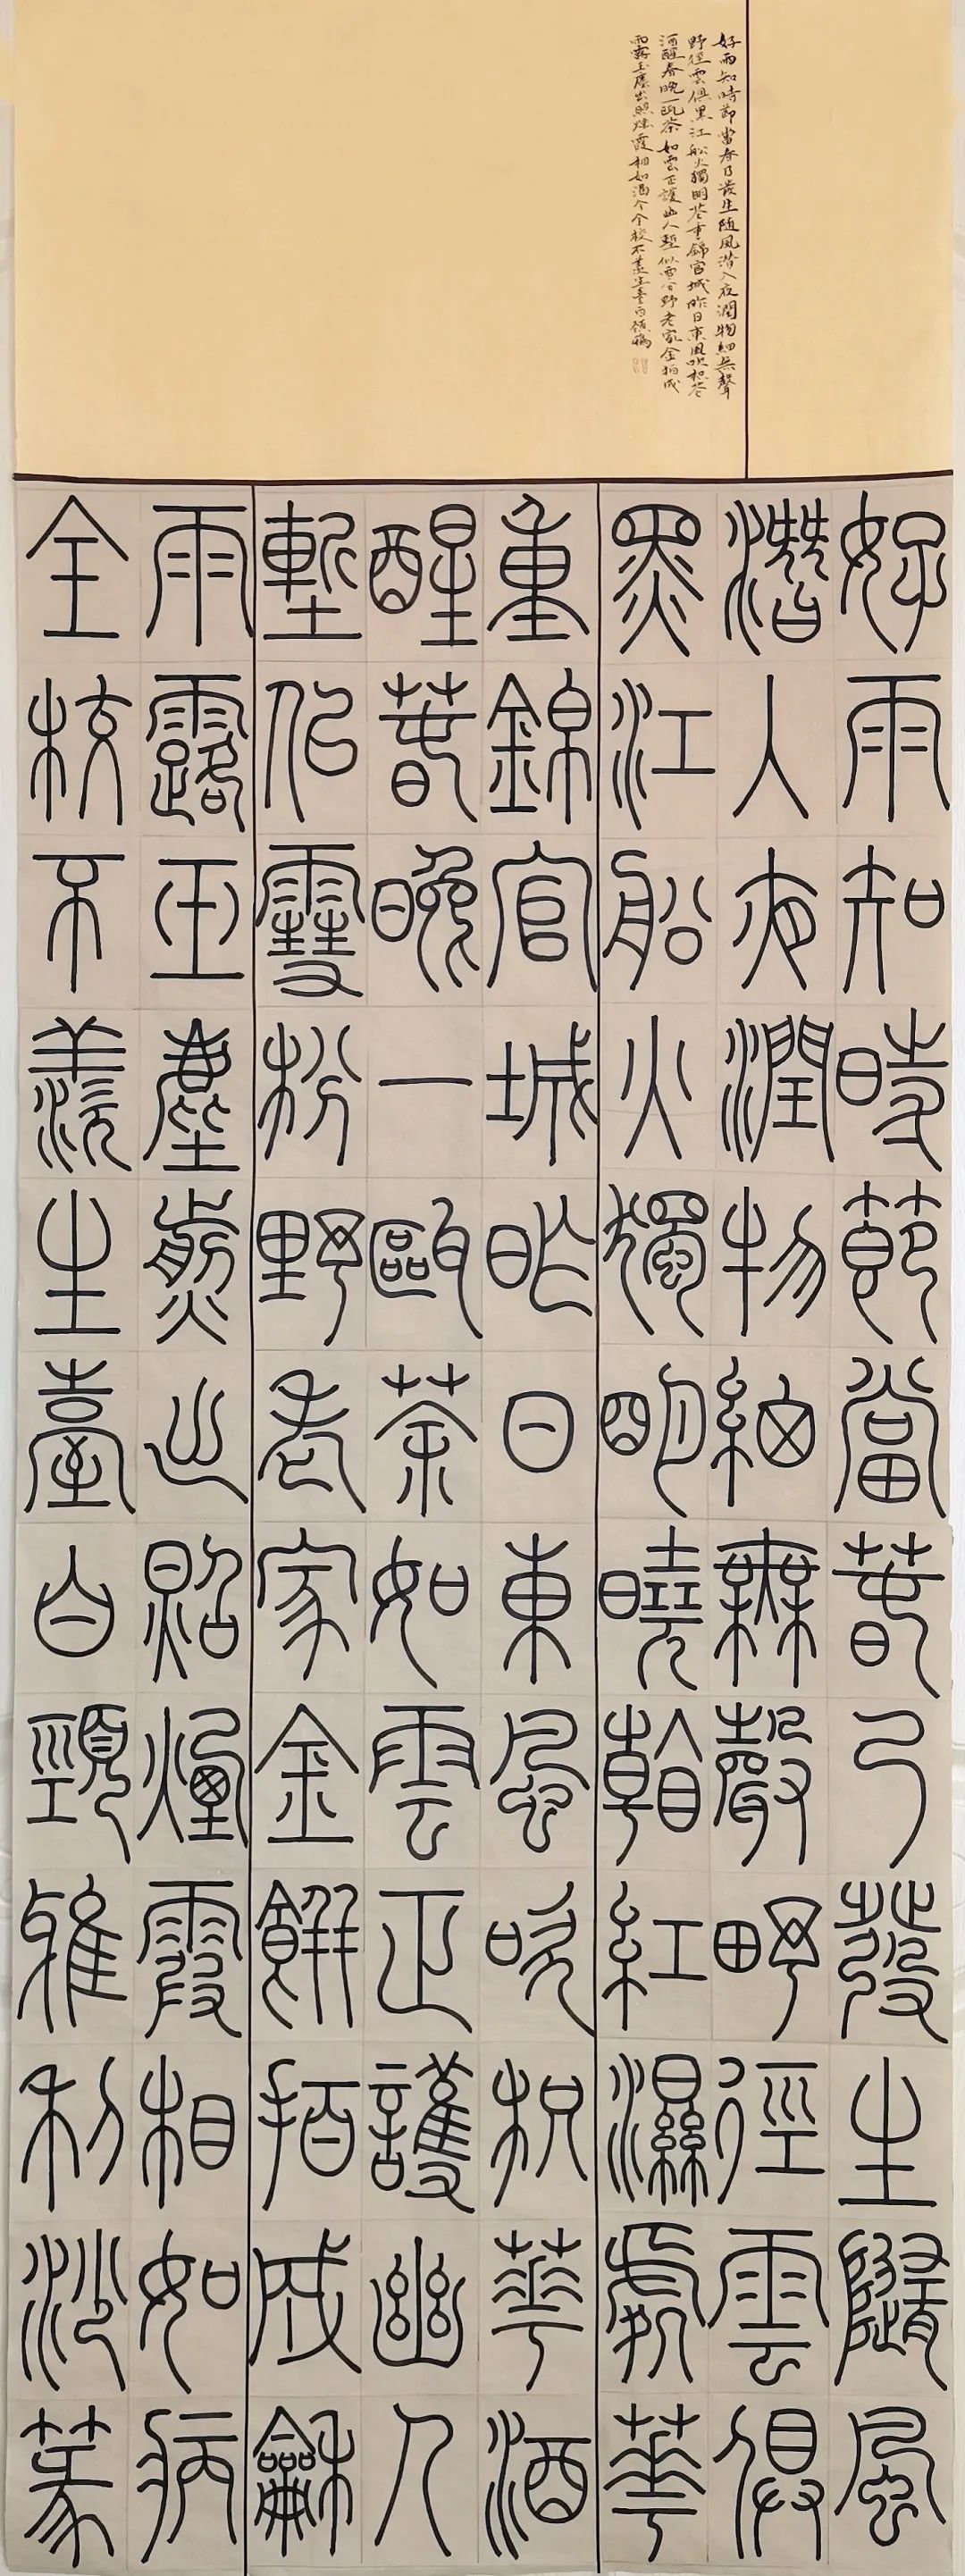 好雨知時節當春乃發生隨風潛入夜潤物細無聲
野徑雲俱黑江船火獨明花重錦官城昨日東風吹枳花
酒醒春晚一甌茶如雲正護幽人塹似雪分野老家金拍成
雨露玉塵出照煙霞相如渴今全校不羨生臺白頸鴉
好雨知時節當春乃發生隨風
潛入夜潤物細無聲野徑雲俱
黑江船火獨明曉看紅濕處華
重錦官城昨日東風吹枳華酒
醒春晚一甌茶如雲正護幽人
塹佀雪粉野老家金餅拍成龢
雨露玉塵煎出照煙霞相如病
全校不羨生臺白頸雅利沙篆